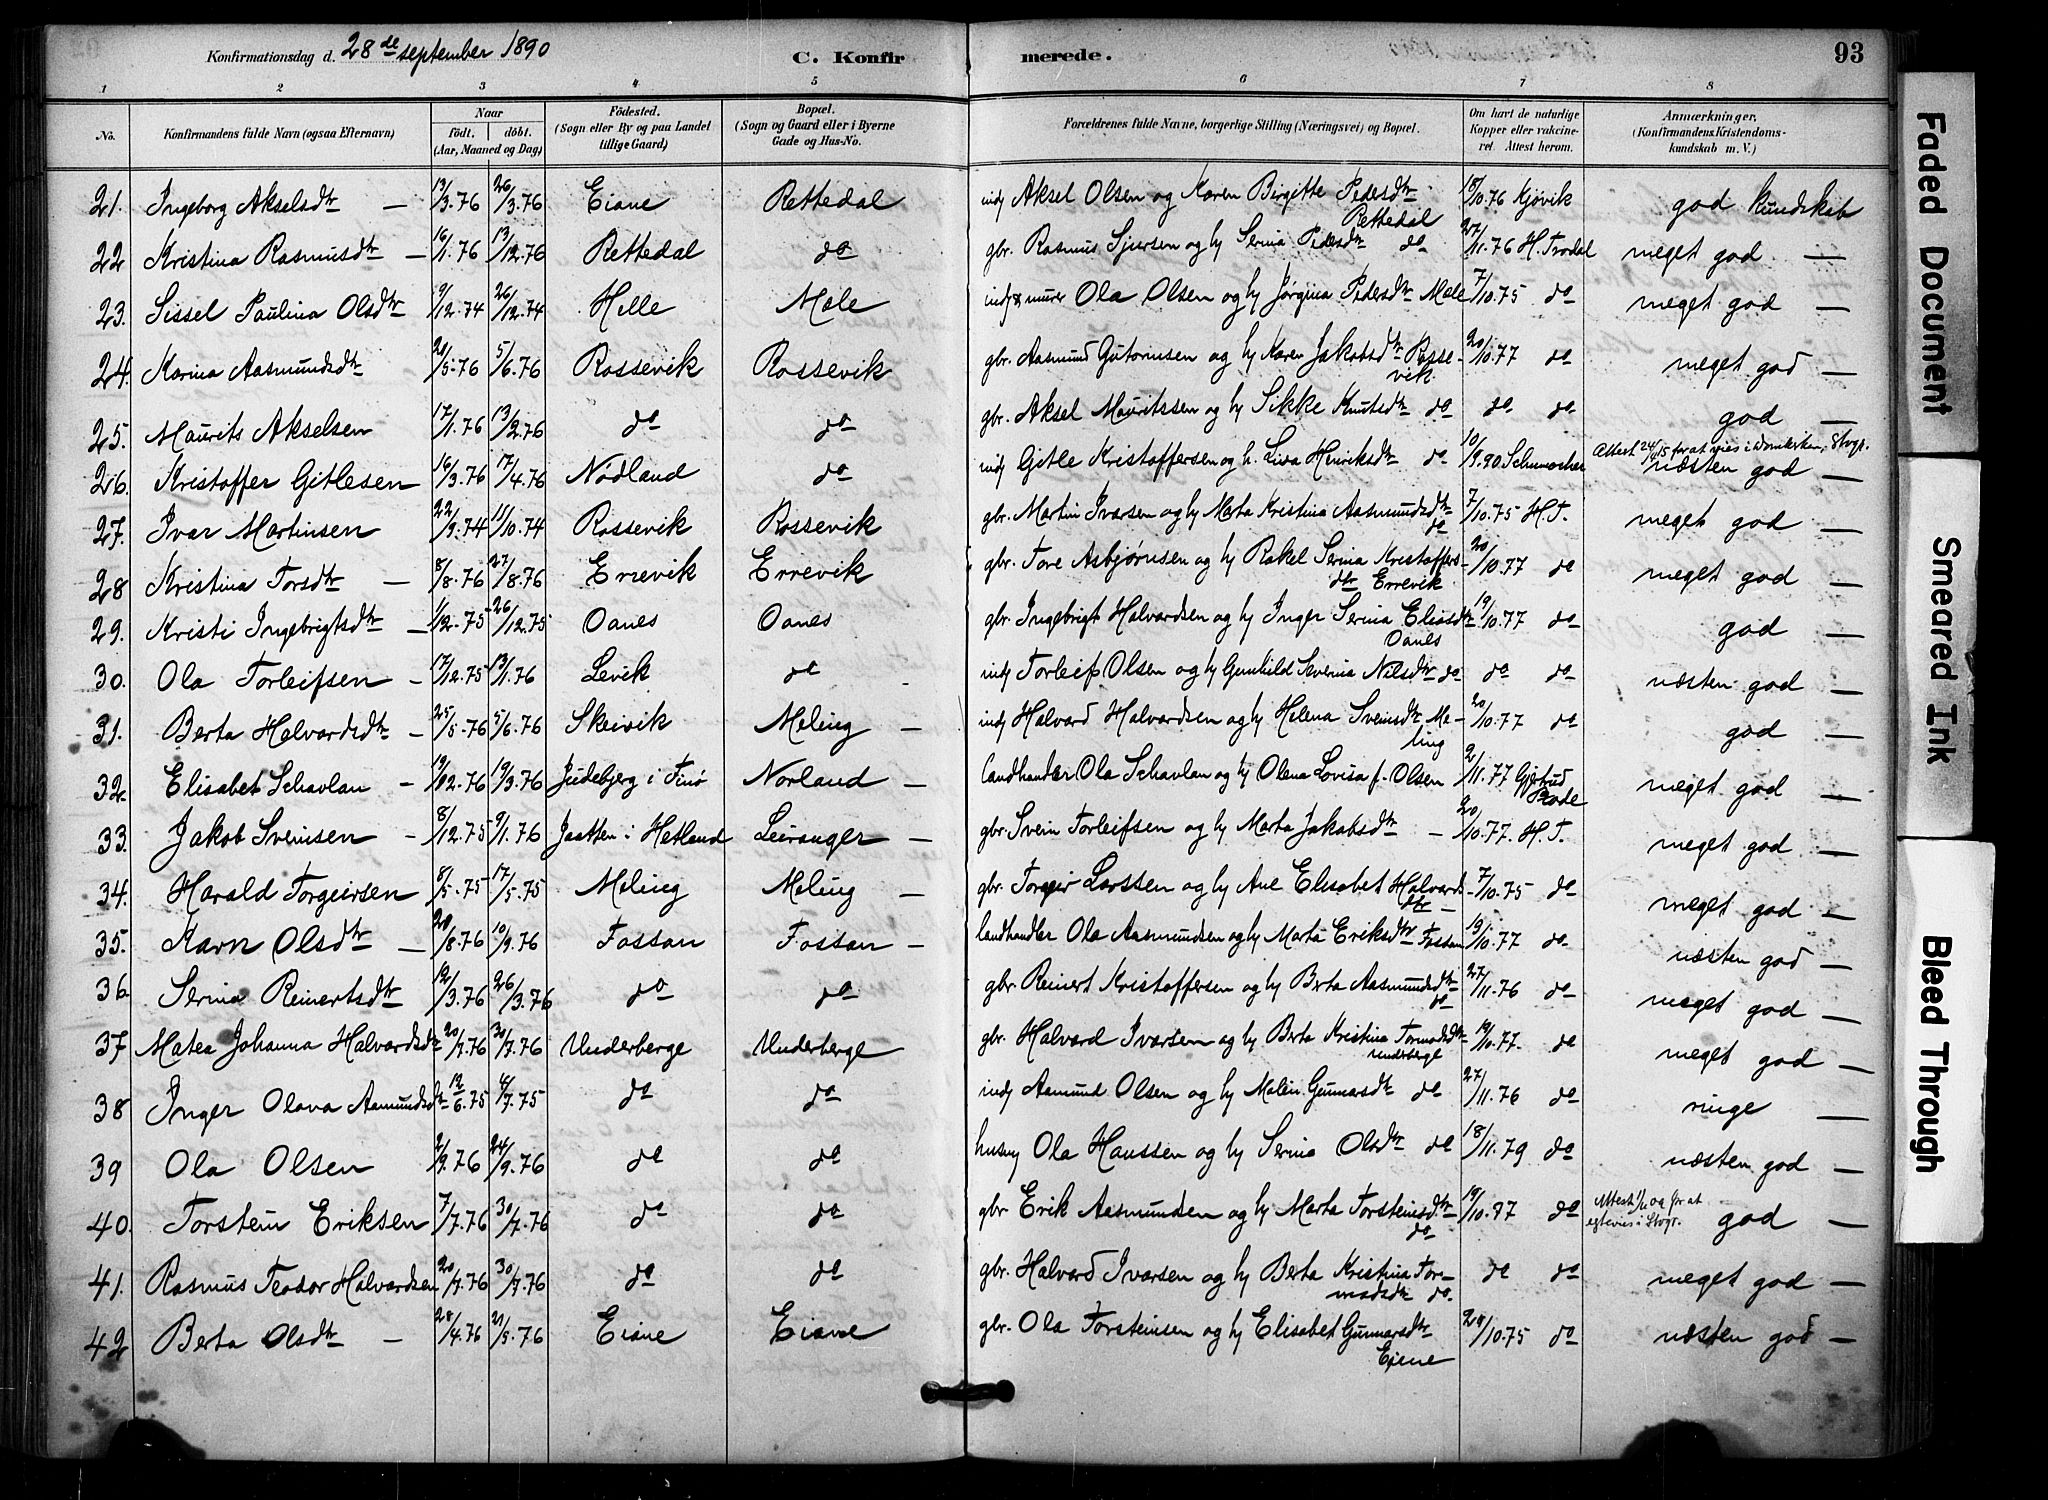 Konfirmationsdag d. 28de september 1890 C. Konfirmerede. 93
1 2 3 4 5 6 7 8
No. Konfirmandens fulde Navn (ogsaa Efternavn) Naar født. døbt. (Aar, Maaned og Dag) Fødested. (Sogn eller By og paa Landet tillige Gaard) Bopæl. (Sogn og Gaard eller i Byerne Gade og Hus-No. Forældrenes fulde Navne, borgerlige Stilling (Næringsvei) og Bopæl. Om havt de naturlige Kopper eller vakcineret. Attest herom. Anmærkninger. (Konfirmandens Kristendomskundskab m. V.)
21. Ingeborg Akselsdtr — 13/3.76 26/3.76 Eiane Rettedal indj Aksel Olsen og Karen Birgitte Pedersdtr Rettedal /10.76 Kjøvik god kundskab
22 Kristina Rasmusdtr — 16/1.76 13/12.76 Rettedal do gbr. Rasmus Sjursen og hj Serina Pedersdtr do 27/11.76 H. Trodal meget god —
23. Sissel Paulina Olsdtr 9/12.74 26/12.74 Helle Møle indj & murer Ola Olsen og hj Jørgina Pedersdtr Møle 7/10.75 do meget god —
24. Karina Aasmundsdtr 20/5.76 5/6.76 Rossevik Rossevik gbr. Aasmund Gutormsen og hj Karen Jakobsdtr Rossevik 20/10.77 do meget god —
25. Maurits Akselsen 17/1.76 13/2.76 do do gbr. Aksel Mauritssen og hj Sikke Knutsdtr do do do god —
26. Kristoffer Gitlesen 16/3.76 17/4.76 Nødland do indj Gitle Kristoffersen og h. Lisa Henriksdtr do 10/9.90 Schumacher Attest 24/4 15 for at vies i Stvgr. næsten god —
27. Ivar Martinsen 22/9.74 11/10.74 Rossevik Rossevik gbr. Martin Ivarsen og hj Marta Kristina Aasmundsdtr do 7/10.75 H.T. meget god —
28 Kristina Torsdtr — 8/8.76 27/8.76 Errevik Errevik gbr. Tore Asbjørnsen og hj Rakel Serina Kristoffersdtr Errevik 20/10.77 do meget god —
29. Kristi Ingebrigtsdtr — 1/12.75 26/12.75 Oanes Oanes gbr. Ingebrigt Halvardsen og hj Inger Serina Eliasdtr Oanes 19/10.77 do god —
30. Ola Torleifsen — 17/12.75 13/1.76 Levik do indj Torleif Olsen og hj Gunhild Severina Nilsdtr do do do næsten god —
31. Berta Halvardsdtr — 25/5.76 5/6.76 Skeivik Meling — indj Halvard Halvardsen og hj Helena Sveinsdtr Meling 20/10.77 do god —
32. Elisabet Schavlan — 19/02.76 19/3.76 Judebjerg i Finø Norland — landhandler Ola Schavlan og hj Olena Lovisa f. Olsen 2/11.77 Gjertrud Rode meget god —
33. Jakob Sveinsen — 8/12.75 9/1.76 Jaatten i Hetland Leiranger — gbr. Svein Torleifsen og hj Marta Jakobsdtr — 20/10.77. H.T. meget god —
34. Harald Torgeirsen 8/5.75 17/5.75 Meling Meling — gbr. Torgeir Larssen og hj Ane Elisabet Halvardsdtr — 7/10.75 do meget god —
35. Karn Olsdtr — 20/8.76 10/9.76 Fossan Fossan — landhandler Ola Aasmundsen og hj Marta Eriksdtr Fossan 19/10.77 do næsten god —
36. Serina Reinertsdtr 12/3.76 26/3.76 do do gbr Reinert Kristoffersen og hj Berta Aasmundsdtr do 27/11.76 do meget god —
37 Matea Johanna Halvardsdtr 20/7.76 30/7.76 Underberge Underberge gbr. Halvard Ivarsen og hj Berta Kristina Tormodsdtr underberge 19/10.77. do meget god —
38 Inger Olava Aamundsdtr 12/6.75 4/7.75 do do indj Aamund Olsen og hj Malin Gunnarsdtr do 27/11.76 do ringe —
39 Ola Olsen 2/9.76 24/9.76 do do husmj Ola Hanssen og hj Serina Olsdtr do 18/11.79 do næsten god —
40. Torstein Eriksen 7/7.76 30/7.76 do do gbr Erik Aasmundsen og hj Marta Torsteinsdtr do 19/10.77 do Attest 1/6 02 for at egtevies i Stvgr. god —
41. Rasmus Teodor Halvardsen 20/7.76 30/7.76 do do gbr. Halvard Ivarsen og hj Berta Kristina Tormodsdtr do. do do meget god —
42 Berta Olsdtr — 28/4.76 21/5.76 Eiane Eiane gbr. Ola Torsteinsen og hj Elisabet Gunnarsdtr Eiene 24/10.75 do næsten god —
Faded Document
Smeared Ink
Bleed Through